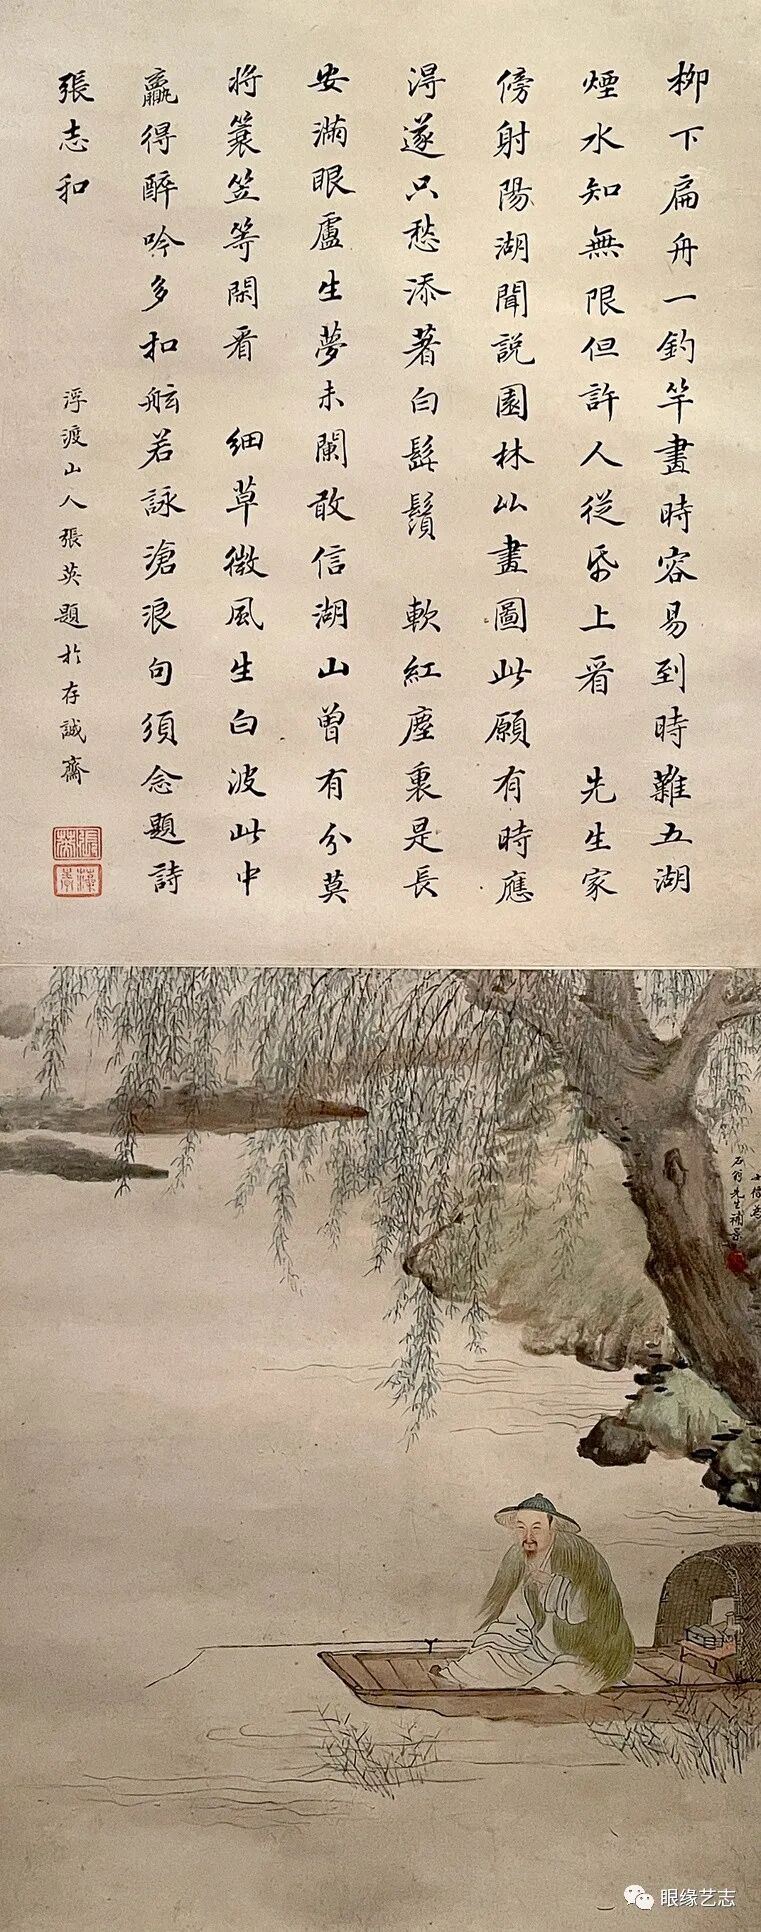 柳下扁舟一釣竿畫時容易到時難五湖
煙水知無限但許人從帋上看 先生家
傍射陽湖聞説園林似畫圖此願有時應
得遂只愁添著白髭鬚 軟紅塵裏是長
安滿眼盧生夢未闌敢信湖山曾有分莫
將蓑笠等閑看 細草微風生白波此中
贏得醉吟多扣舷若詠滄浪句須念題詩
張志和
浮渡山人張英題於存誠齋
張英
石翁先生補景
眼缘艺志